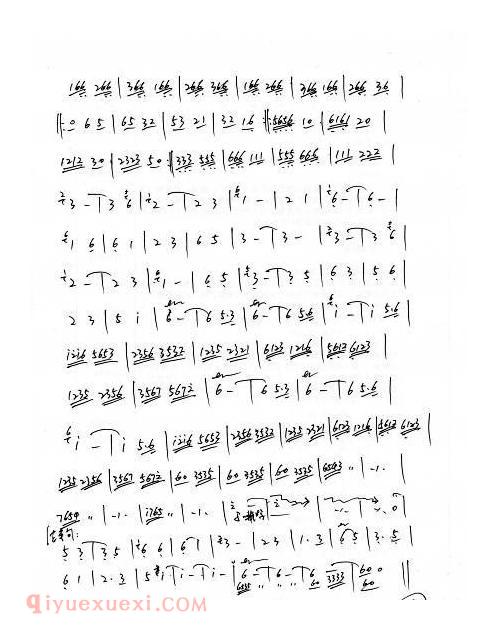 166 266 | 366 166 | 266 366 | 166 266 | 366 166 | 266 36 |
‖: 0 6 5 | 65 32 | 53 21 | 32 1.6 :‖: 5656 10 | 6161 20 |
1212 30 | 2323 50 :‖: 333 555 | 666 111 | 555 666 | 111 222 |
3 - | 3 6 | 2 - | 2 3 | 1 - | 2 1 | 6 - | 6 - |
1 6 | 6 1 | 2 3 | 6 5 | 3 - | 3 - | 3 - | 3 6 |
2 - | 2 3 | 1 - | 6 5 | 3 - | 3 5 | 6 3 | 5 6 |
2 3 | 5 i | 6 - | 6 5.3 | 6 - | 6 5.6 | i - | i 5.6 |
i2i6 5653 | 2356 3532 | 1235 2321 | 6123 1216 | 5612 6123 |
1235 2356 | 3567 5672 | 6 - | 6 5.3 | 6 - | 6 5.6 |
i - | i 5.6 | i2i6 5653 | 2356 3532 | 1235 2321 | 6123 1216 | 5612 6123 |
1235 2356 | 3567 5672 | 60 3535 | 60 3535 | 60 3535 | 6543 " | -1. |
7654 " | -1. | i765 " | -1. |
5 3 | 3 5 | 6 6 | 6 1 | 3 - | 2 3 | 1. 3 | 6 5 | 3. 5 |
6 1 | 2. 3 | 5 i | i - | i - | 6 - | 6 - | 6 - | 60 0 ‖
qiyuexuexi.com